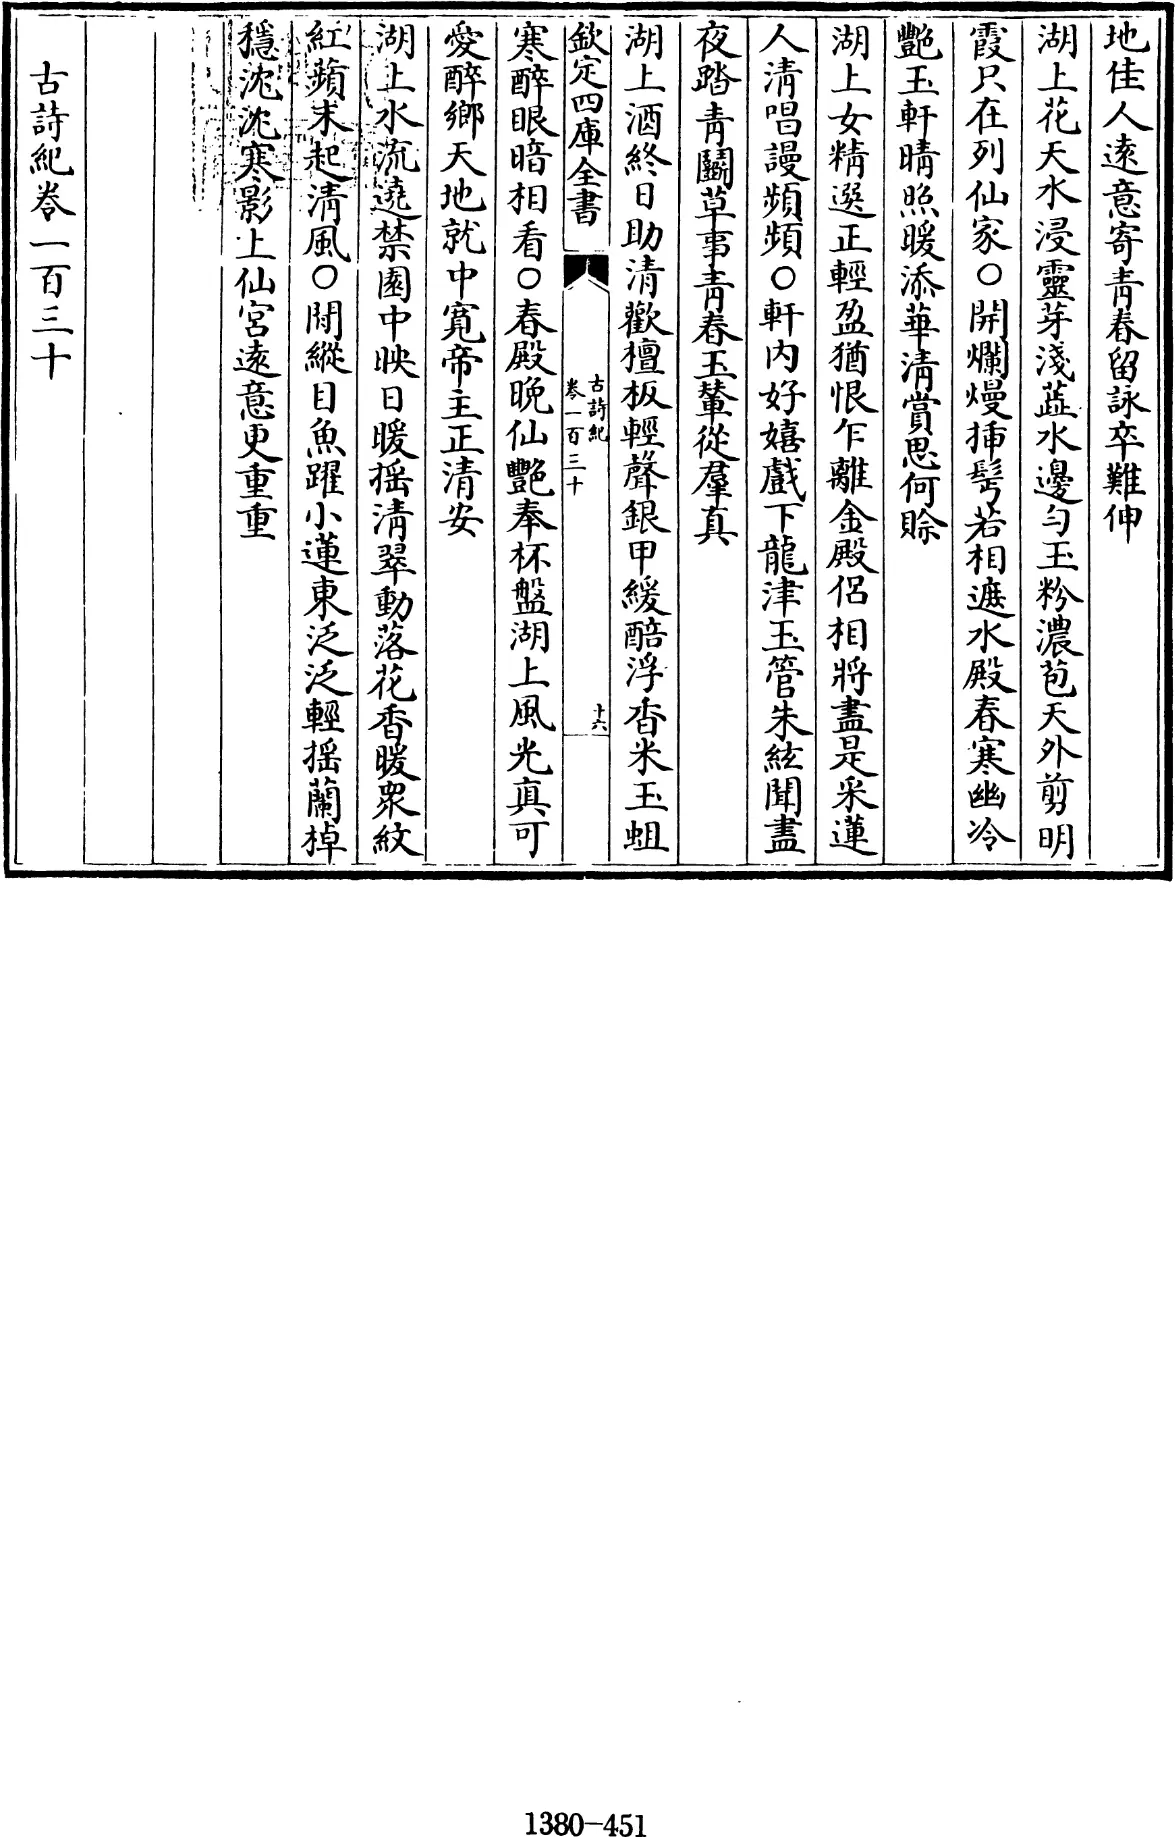 地佳人遠意寄青春留詠卒難伸
湖上花天水浸靈芽淺蕋水邊勻玉粉濃苞天外剪明
霞只在列仙家○開爛熳揷髩若相遮水殿春寒幽冷
艷玉軒晴照暖添華清賞思何賖
湖上女精選正輕盈猶恨乍離金殿侣相將盡是采蓮
人清唱謾頻頻○軒内好嬉戲下龍津玉管朱絃聞晝
夜踏青鬭草事青春玉輦從羣真
湖上酒終日助清歡檀板輕聲銀甲緩醅浮香米玉蛆
欽定四庫全書
古詩紀
卷一百三十
十六
寒醉眼暗相看○春殿晚仙艷奉杯盤湖上風光真可
愛醉鄉天地就中寛帝主正清安
湖上水流遶禁園中映日暖揺清翠動落花香暖衆紋
紅蘋末起清風○閒縱目魚躍小蓮東泛泛輕揺蘭棹
穩沈沈寒影上仙宮遠意更重重
古詩紀卷一百三十
1380-451